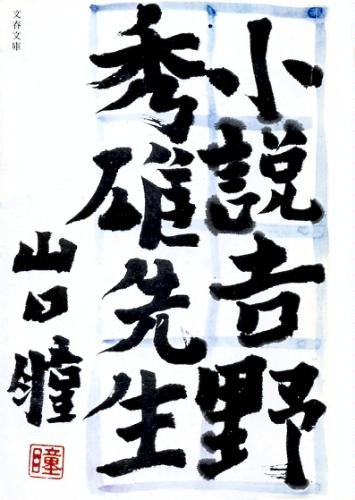 文春文庫
小説吉野
秀雄先生
山口瞳
瞳